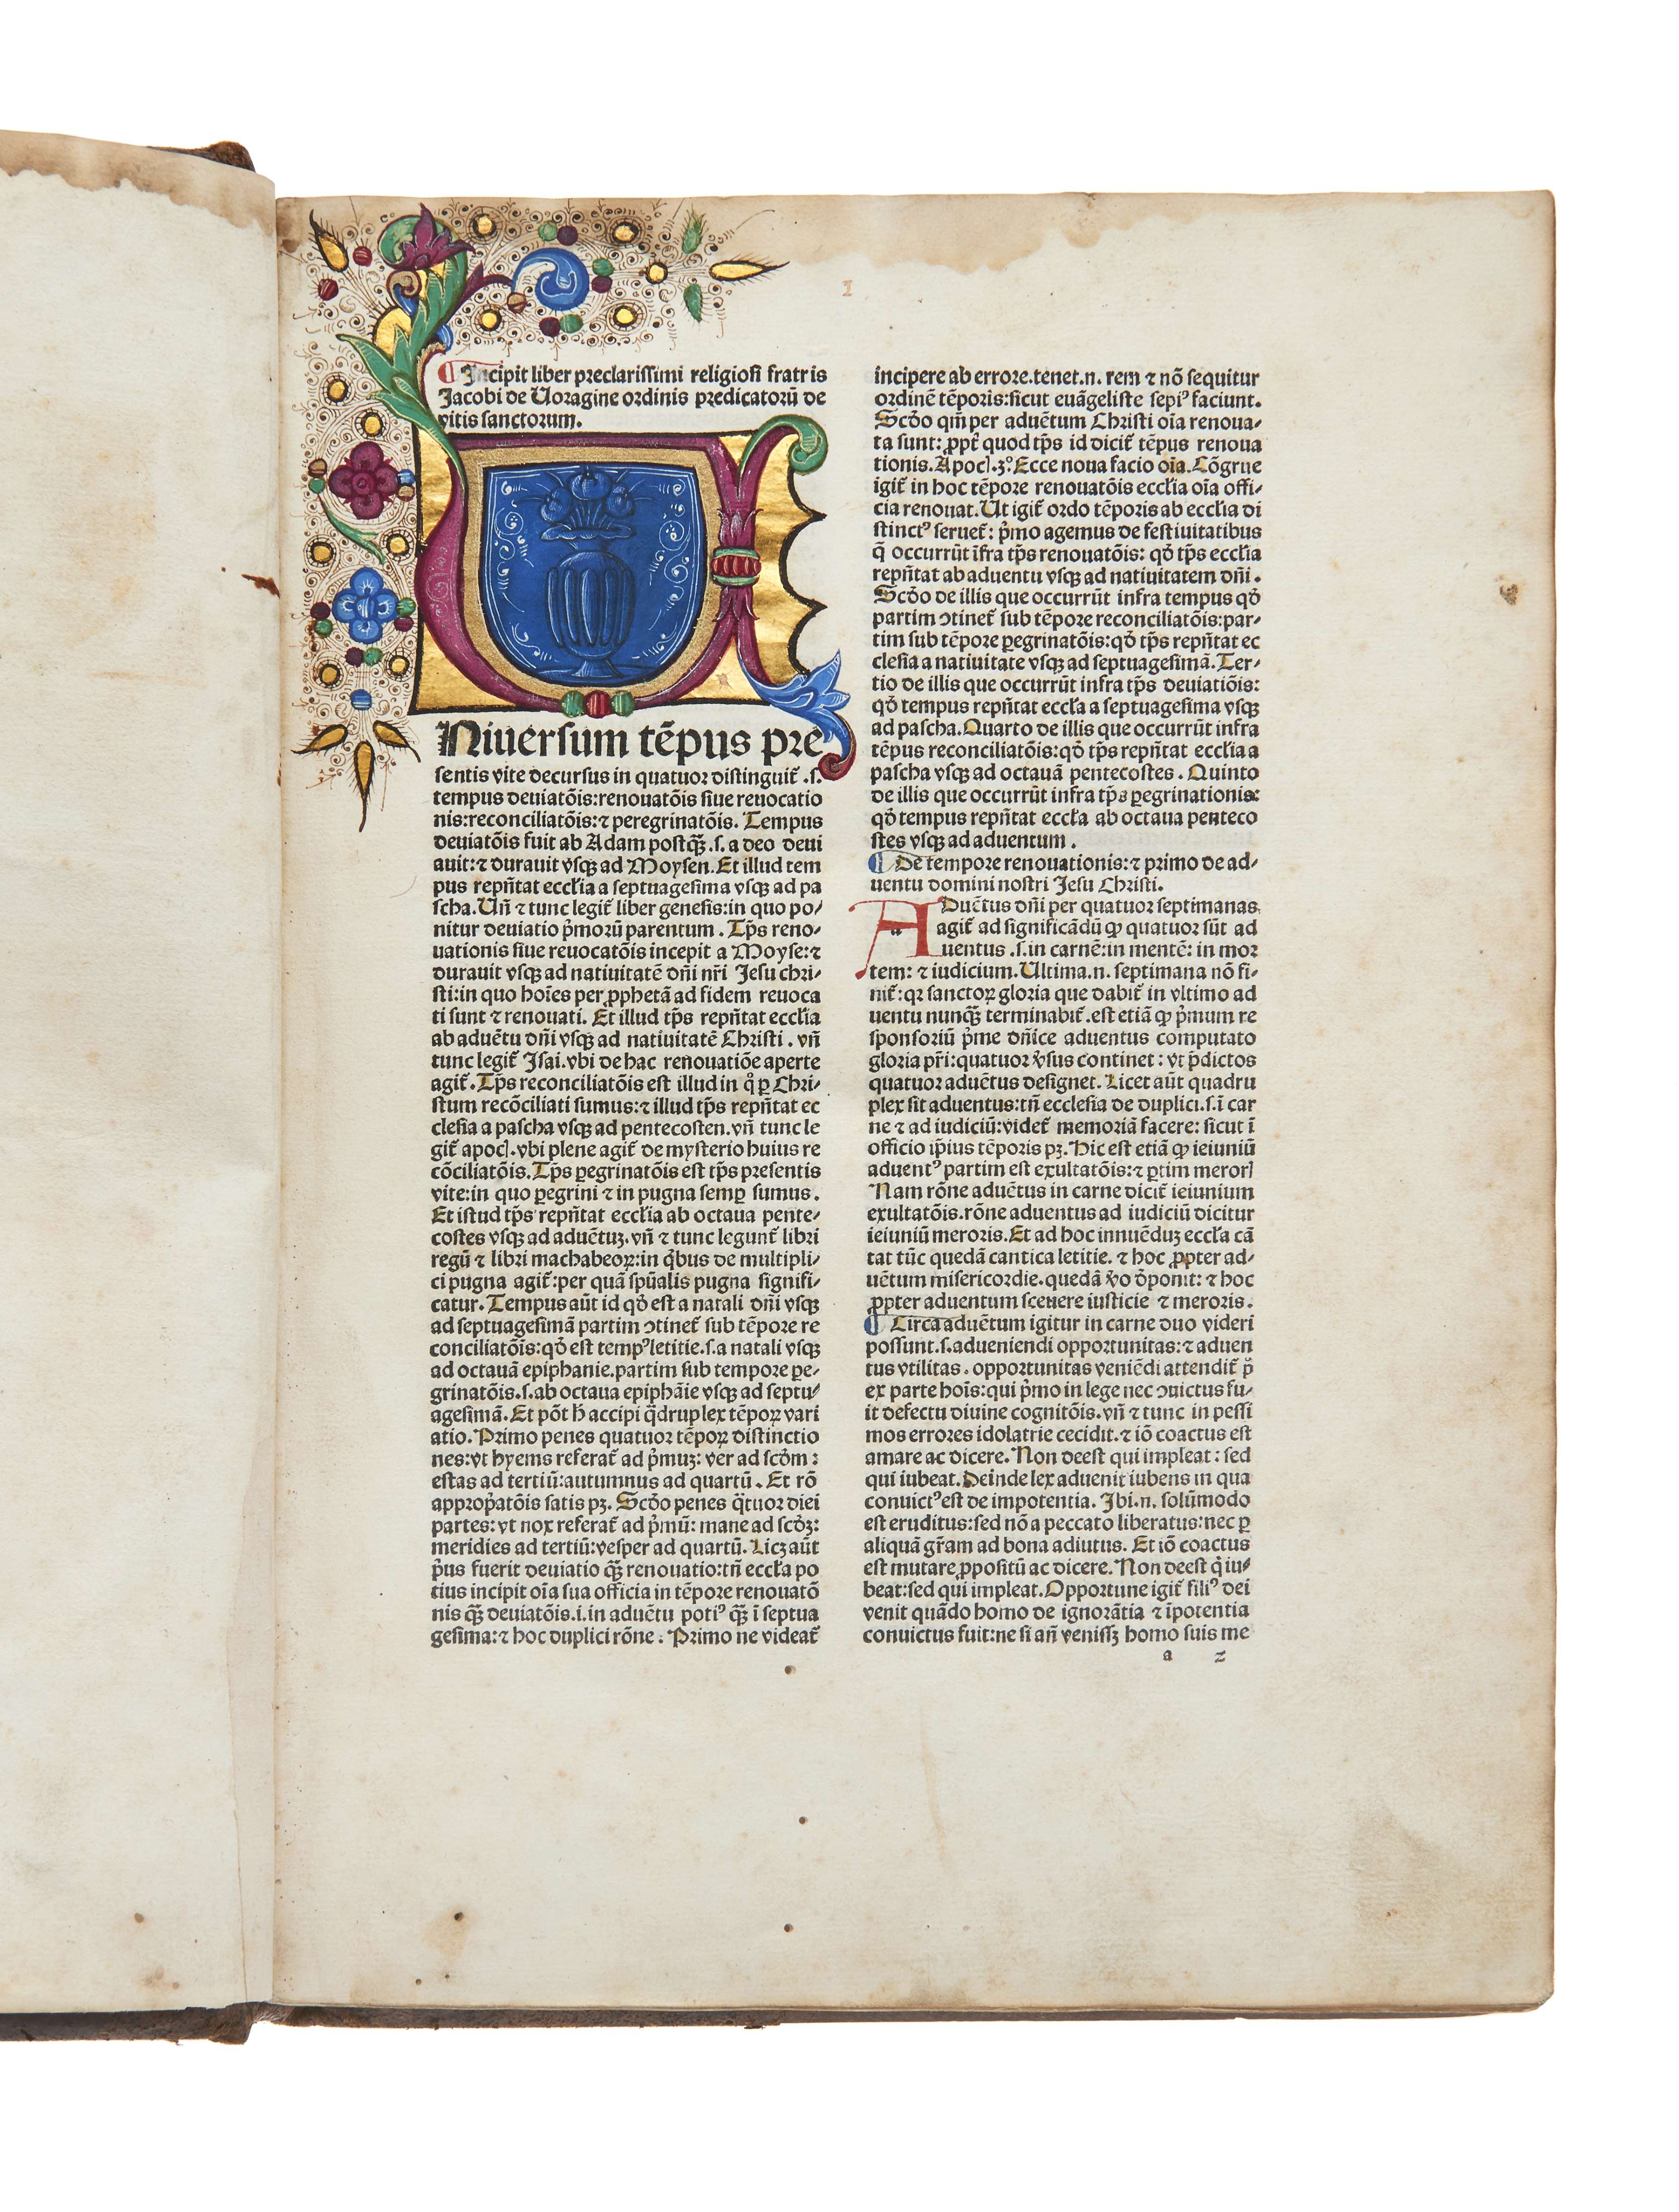 1
¶ Incipit liber preclarissimi religiosi fratris
Jacobi de Uoragine ordinis predicatoꝝ de
vitis sanctorum.
Niuersum tẽpus pre
sentis vite decursus in quatuor distinguit̃ .s.
tempus deuiatõis:renouatõis siue reuocatio
nis:reconciliatõis:⁊ peregrinatõis. Tempus
deuiatõis fuit ab Adam postq̃ꝫ .s. a deo deui
auit:⁊ durauit vsqꝫ ad Moysen. Et illud tem
pus repñtat eccl̃ia a septuagesima vsqꝫ ad pa
scha. Uñ ⁊ tunc legit̃ liber genesis:in quo po⸗
nitur deuiatio p̃morũ parentum . Tp̃s reno⸗
uationis siue reuocatõis incepit a Moyse:⁊
durauit vsqꝫ ad natiuitatẽ dñi nr̃i Jesu chri⸗
sti:in quo hoĩes per ꝓphetã ad fidem reuoca
ti sunt ⁊ renouati. Et illud tp̃s repñtat eccl̃ia
ab aduẽtu dñi vsqꝫ ad natiuitatẽ Christi . vñ
tunc legit̃ Isai.vbi de hac renouatiõe aperte
agit̃. Tp̃s reconciliatõis est illud in q̊ ꝑ Chri⸗
stum recõciliati sumus:⁊ illud tp̃s repñtat ec
clesia a pascha vsqꝫ ad pentecosten.vñ tunc le
git̃ apocl̃.vbi plene agit̃ de mysterio huius re
cõciliatõis. Tp̃s ꝑegrinatõis est tp̃s presentis
vite:in quo ꝑegrini ⁊ in pugna semꝑ sumus.
Et istud tp̃s repñtat eccl̃ia ab octaua pente⸗
costes vsqꝫ ad aduẽtuꝫ.vñ ⁊ tunc legunt̃ libri
regũ ⁊ libri machabeoꝝ:in q̃bus de multipli⸗
ci pugna agit̃:per quã spũalis pugna signifi⸗
catur. Tempus aũt id qđ est a natali dñi vsqꝫ
ad septuagesimã partim ꝯtinet̃ sub tẽpore re
conciliatõis:qđ est tempꝰ letitie.s.a natali vsqꝫ
ad octauã epiphanie.partim sub tempore pe⸗
grinatõis.s.ab octaua epiphãie vsqꝫ ad septu⸗
agesimã. Et põt h̃ accipi q̃druplex tẽpoꝝ vari
atio. Primo penes quatuor tẽpoꝝ distinctio
nes:vt hyems referat̃ ad p̃muꝫ: ver ad scđm :
estas ad tertiũ:autumnus ad quartũ . Et rõ
approp̃atõis satis pꝫ. Scđo penes q̃tuor diei
partes: vt nox referat̃ ad p̃mũ: mane ad scđꝫ:
meridies ad tertiũ:vesper ad quartũ. Licꝫ aũt
p̃us fuerit deuiatio q̃ꝫ renouatio:tñ eccl̃a po
tius incipit oĩa sua officia in tẽpore renouatõ
nis q̃ꝫ deuiatõis.i.in aduẽtu potiꝰ q̃ꝫ ĩ septua
gesima:⁊ hoc duplici rõne . Primo ne videat̃
incipere ab errore.tenet.n. rem ⁊ nõ sequitur
ordinẽ tẽporis:sicut euãgeliste sepiꝰ faciunt.
Scđo qm̃ per aduẽtum Christi oĩa renoua⸗
ta sunt: ꝓpt̃ quod tp̃s id dicit̃ tẽpus renoua
tionis. Apocl̃.3° Ecce noua facio oĩa. Cõgrue
igit̃ in hoc tẽpore renouatõis eccl̃ia oĩa offi⸗
cia renouat. Ut igit̃ ordo tẽporis ab eccl̃ia di
stinctꝰ seruet̃: p̃mo agemus de festiuitatibus
q̃ occurrũt ĩfra tp̃s renouatõis: qđ tp̃s eccl̃ia
repñtat ab aduentu vsqꝫ ad natiuitatem dñi .
Scđo de illis que occurrũt infra tempus qđ
partim ꝯtinet̃ sub tẽpore reconciliatõis:par⸗
tim sub tẽpore ꝑegrinatõis:qđ tp̃s repñtat ec
clesia a natiuitate vsqꝫ ad septuagesimã. Ter⸗
tio de illis que occurrũt infra tp̃s deuiatiõis:
qđ tempus repñtat eccl̃a a septuagesima vsqꝫ
ad pascha. Quarto de illis que occurrũt infra
tẽpus reconciliatõis:qđ tp̃s repñtat eccl̃ia a
pascha vsqꝫ ad octauã pentecostes . Quinto
de illis que occurrũt infra tp̃s ꝑegrinationis:
qđ tempus repñtat eccl̃a ab octaua penteco
stes vsqꝫ ad aduentum .
¶ De tempore renouationis:⁊ primo de ad⸗
uentu domini nostri Jesu Christi.
ADuẽtus dñi per quatuor septimanas
agit̃ ad significãdũ ꝙ quatuor sũt ad
uentus .s.in carnẽ:in mentẽ: in mor
tem: ⁊ iudicium. Ultima.n. septimana nõ fi⸗
nit̃:qꝛ sanctoꝝ gloria que dabit̃ in vltimo ad
uentu nunq̃ꝫ terminabit̃.est etiã ꝙ p̃mum re
sponsoriũ p̃me dñice aduentus computato
gloria pr̃i:quatuor v̾sus continet : vt p̃dictos
quatuor aduẽtus designet. Licet aũt quadru
plex sit aduentus:tñ ecclesia de duplici.s.ĩ car
ne ⁊ ad iudiciũ:videt̃ memoriã facere: sicut ĩ
officio ip̃ius tẽporis pꝫ. Hic est etiã ꝙ ieiuniũ
aduentꝰ partim est exultatõis:⁊ ꝑtim merorꝭ
Nam rõne aduẽtus in carne dicit̃ ieiunium
exultatõis.rõne aduentus ad iudiciũ dicitur
ieiuniũ meroris. Et ad hoc innuẽduꝫ eccl̃a cã
tat tũc quedã cantica letitie. ⁊ hoc ꝓpter ad⸗
uẽtum misericordie.quedã v̾o đponit: ⁊ hoc
ꝓpter aduentum sceuere iusticie ⁊ meroris.
¶ Circa aduẽtum igitur in carne duo videri
possunt.s.adueniendi opportunitas:⁊ aduen
tus vtilitas . opportunitas veniẽdi attendit̃ p̃
ex parte hoĩs:qui p̃mo in lege nec ꝯuictus fu⸗
it defectu diuine cognitõis.vñ ⁊ tunc in pessi
mos errores idolatrie cecidit.⁊ iõ coactus est
amare ac dicere. Non deest qui impleat : sed
qui iubeat. Deinde lex aduenit iubens in qua
conuictꝰ est de impotentia. Ibi.n. solũmodo
est eruditus:sed nõ a peccato liberatus:nec ꝑ
aliquã gr̃am ad bona adiutus. Et iõ coactus
est mutare ꝓpositũ ac dicere. Non deest q̃ iu⸗
beat:sed qui impleat. Opportune igit̃ filiꝰ dei
venit quãdo homo de ignorãtia ⁊ ĩpotentia
conuictus fuit:ne si añ venissꝫ homo suis me
a 2